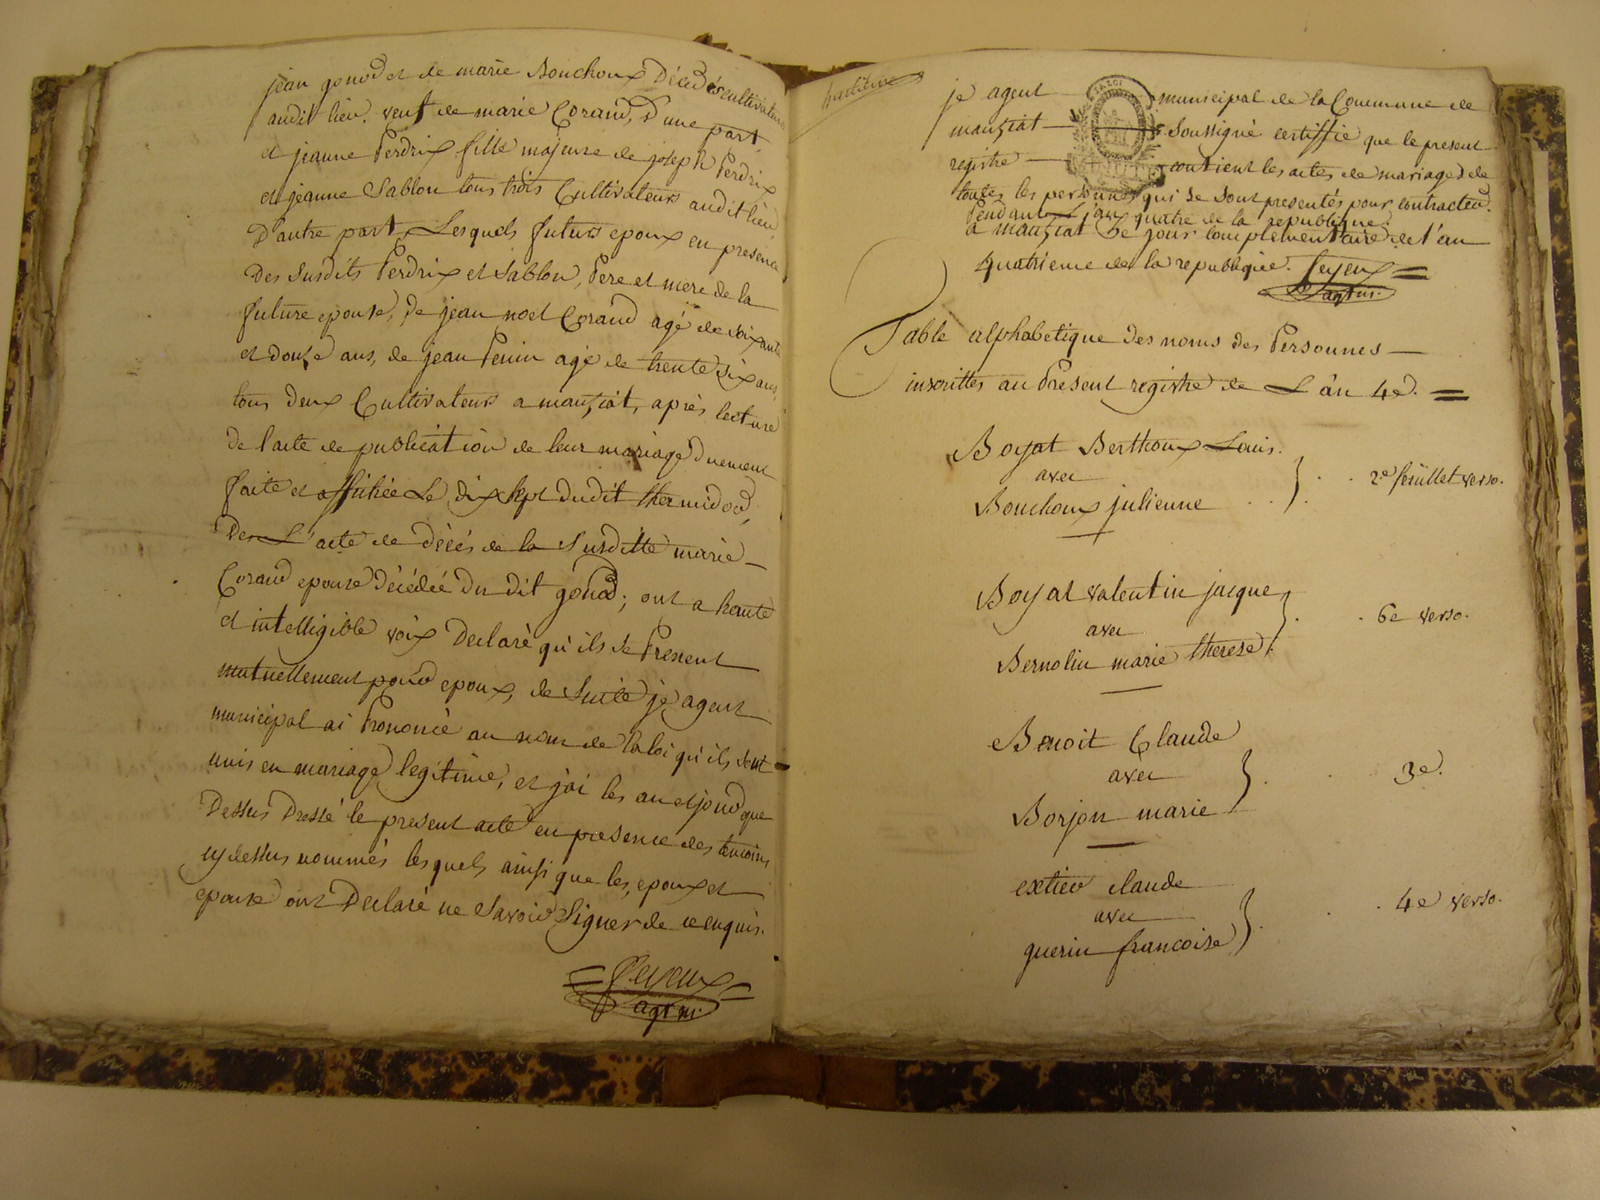 jean gonod et de marie Bouchoux Décédés cultivateurs
audit lieu, veuf de marie Corand, D'une part
et jeanne Perdrix fille majeure de joseph Perdrix
et jeanne Sablon tous trois Cultivateurs audit lieu
D'autre part, Lesquels futurs epoux en presence
Des Susdits Perdrix et Sablon, Pere et mere de la
future epouse, De jean noel Corand agé de soixante
et douze ans, de jean Penin agé de trente six ans,
tous deux Cultivateurs a manziat, après lecture
De l'acte de publication de leur mariage Duement
faite et affichée Le dix Sept dudit thermidor,
De L'acte de Décés de la Susditte marie
Corand epouse Décédée Du dit gonod; ont a haute
et intelligible voix Declaré qu'ils se Prenent
mutuellement pour epoux, de Suite je agent
municipal ai Prononcé au nom de la loi qu'ils sont
unis en mariage legitime, et j'ai les an et jour que
Dessus Dressé le present acte en presence des temoins
cy dessus nommés lesquels ainsi que les epoux et
epouse ont Declaré ne Savoir Signer de ce enquis.
Feyeux
agt m.
je agent municipal de la Commune de
manziat Soussigné certiffie que le present
registre contient les actes de mariages de
toutes les personnes qui se sont presentés pour contracter
Pendant l'an quatre de la republique
a manziat 5e jour complementaire de l'an
quatrieme de la republique. Feyeux
agt m.
Table alphabetique Des noms des Personnes
inscrittes au Present registre de L'an 4e.
Boyat Berthoux Louis.
avec
Bouchoux julienne . . } . . 2e feuillet verso.
Boyat valentin jacque
avec
Bernolin marie therese } . . 6e verso.
Benoit Claude
avec
Borjon marie } . . 3e.
extier claude
avec
guerin francoise } . . 4e verso.